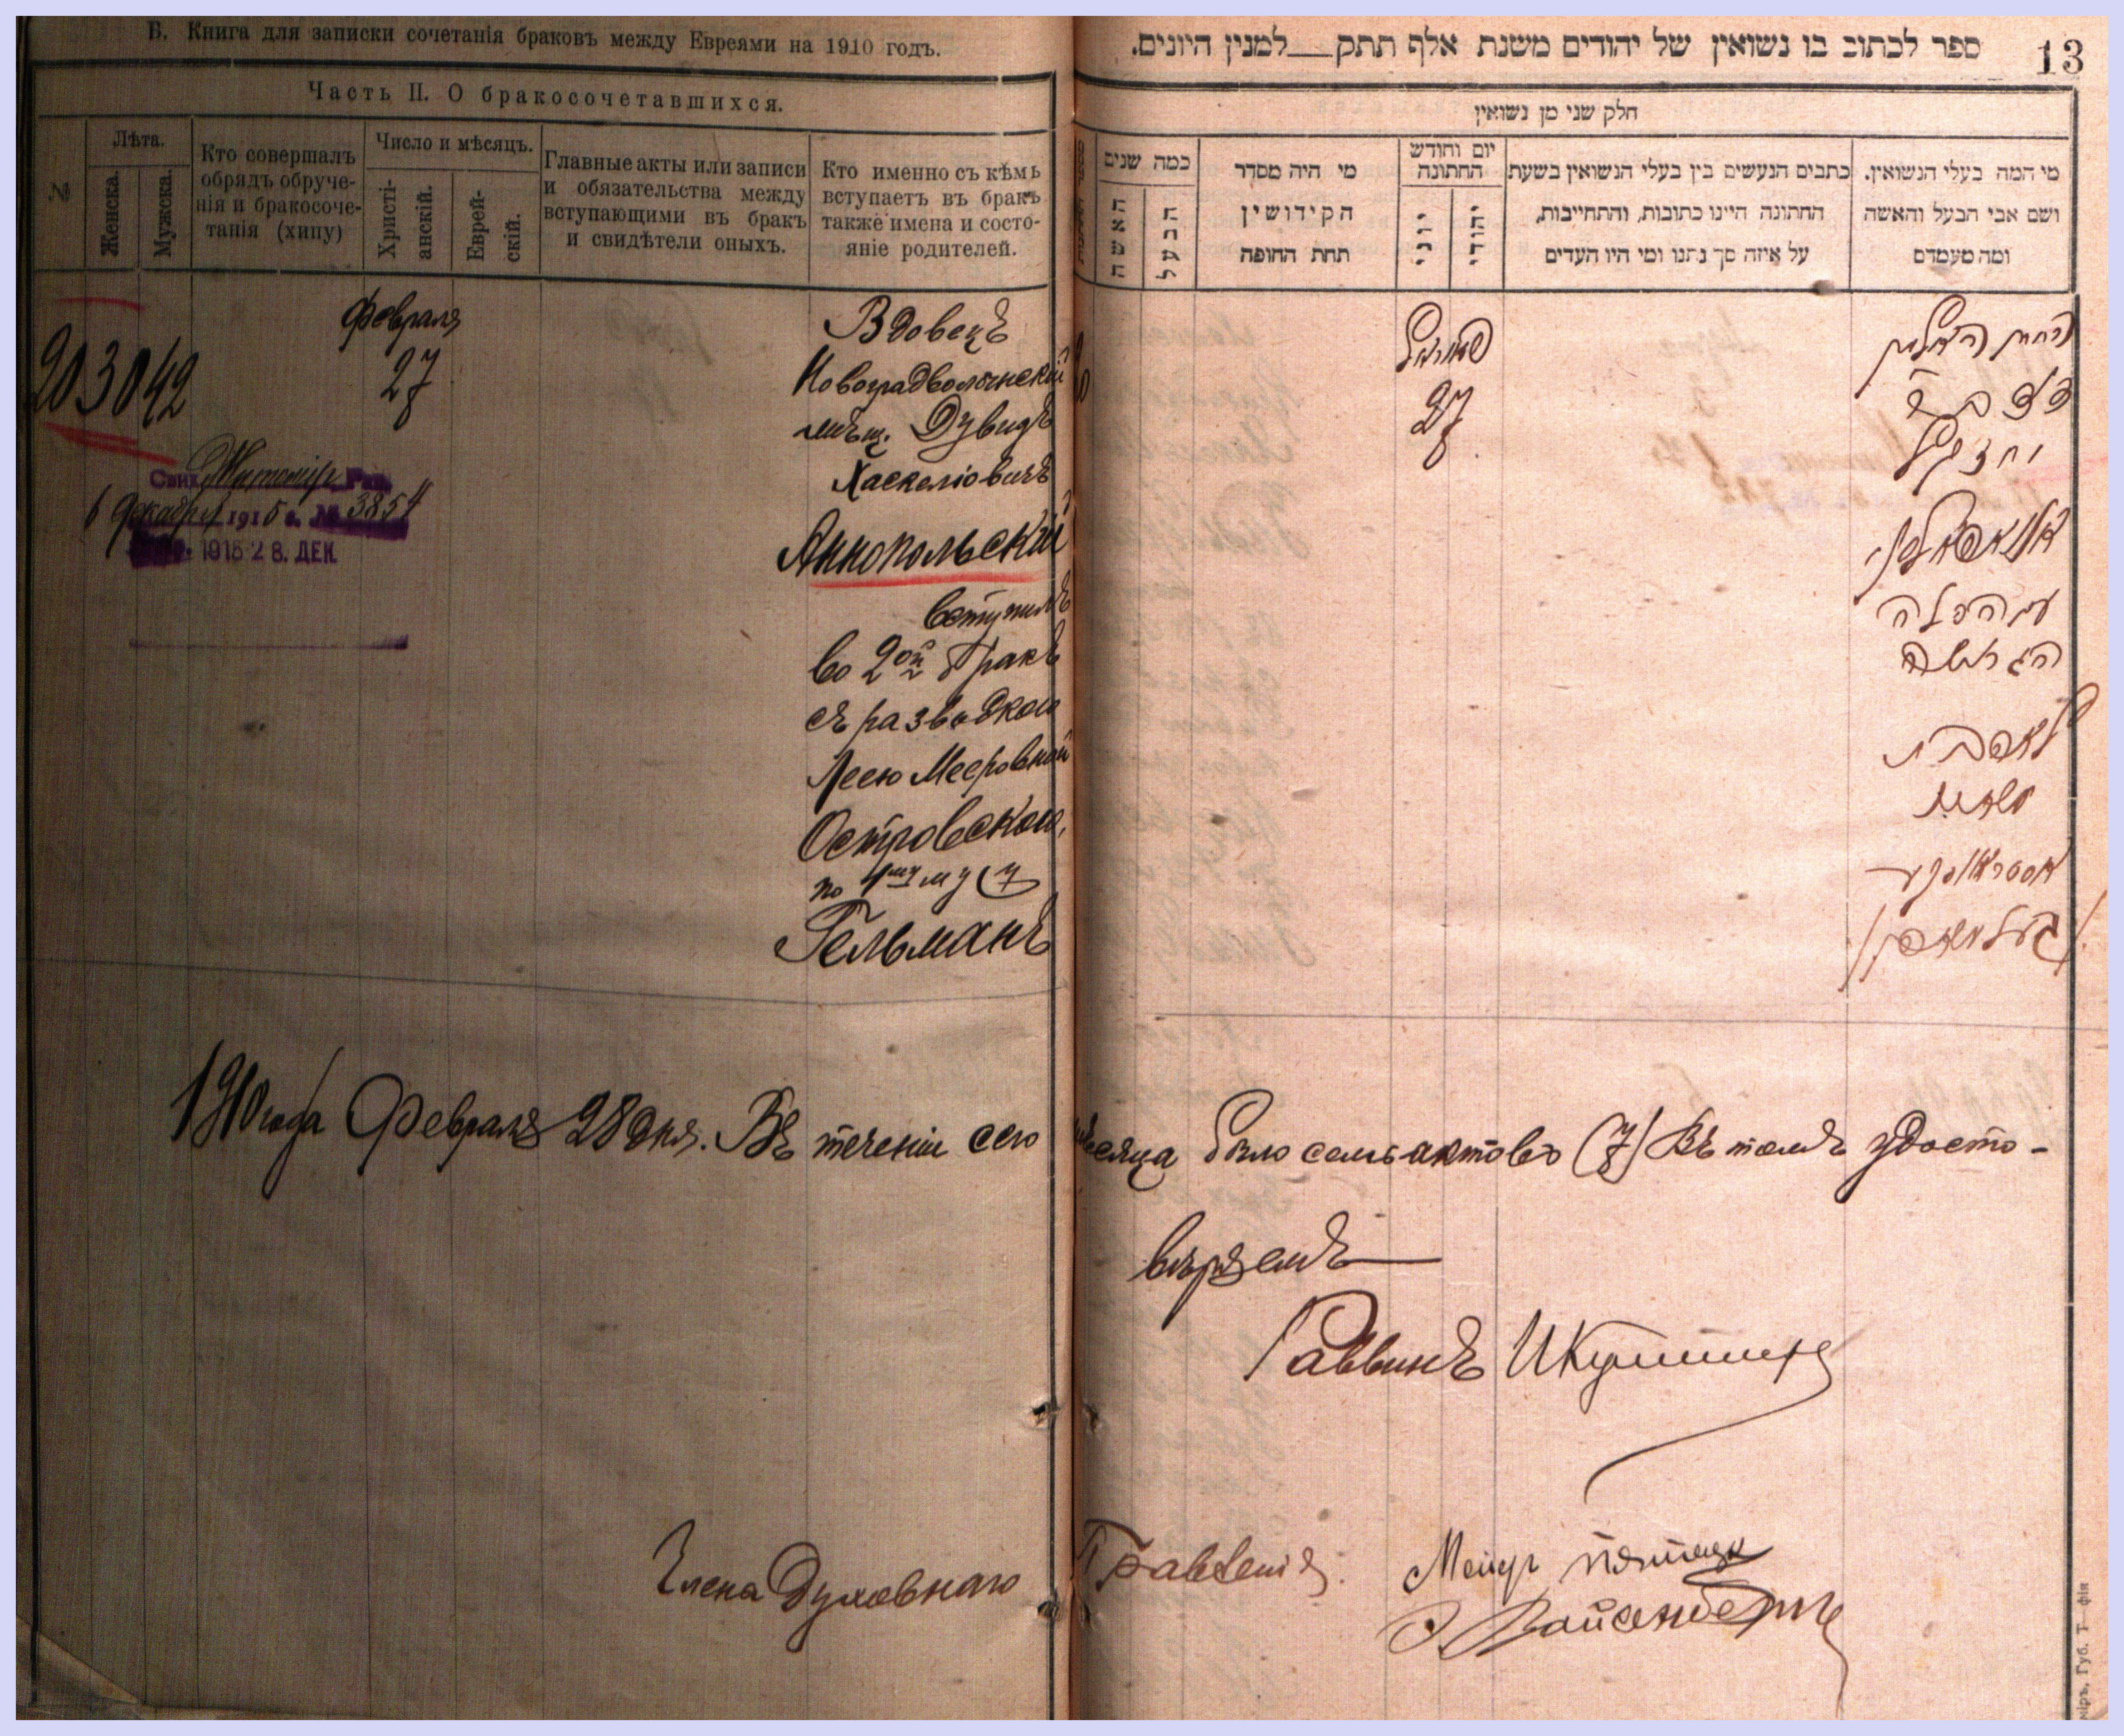 Б. Книга для записки сочетанія браковъ между Евреями на 1910 годъ.
Часть II. О бракосочетавшихся.
№
Лѣта.
Женска.
Мужска.
Кто совершалъ
обрядъ обруче-
нія и бракосоче-
танія (хипу)
Число и мѣсяцъ.
Христі-
анскій.
Еврей-
скій.
Главные акты или записи
и обязательства между
вступающими въ бракъ
и свидѣтели оныхъ.
Кто именно съ кѣмъ
вступаетъ въ бракъ
также имена и состо-
яніе родителей.
Февраля
27
30 42
Вдовецъ
Новоградволынскій
мѣщ. Дувидъ
Хаскеліовичъ
Аннопольскій
вступилъ
во 2ой бракъ
съ разводкою
Леею Мееровной
Островскою,
по 1му мужу
Гельманъ
Свид. Житомір. Рав.
6 Декабря 1915 г. № 3854
1915 28. ДЕК.
13
ספר לכתוב בו נשואין של יהודים משנת אלף תתק __ למנין היונים.
חלק שני מן נשואין
כמה שנים
האשה
הבעל
מי היה מסדר
הקידושין
תחת החופה
יום וחודש
החתונה
יוני
יהודי
כתבים הנעשים בין בעלי הנשואין בשעת
החתונה היינו כתובות, והתחייבות,
על איזה סך נתנו ומי היו העדים
מי המה בעלי הנשואין.
ושם אבי הבעל והאשה
ומה מעמדם
27
החתן האלמן
דוד ב״ר
יחזקאל
אנאפאלסקי
עם הכלה
הגרושה
לאה בת
מאיר
אסטראווסקי
(געלמאן)
1910 года Февраля 28 дня. Въ теченіи сего мѣсяца было семь актовъ (7) Въ томъ удосто-
вѣряемъ
Раввинъ
Члена Духовнаго Правленія.
Меир
Вайсенбергъ
Губ. Т-фія